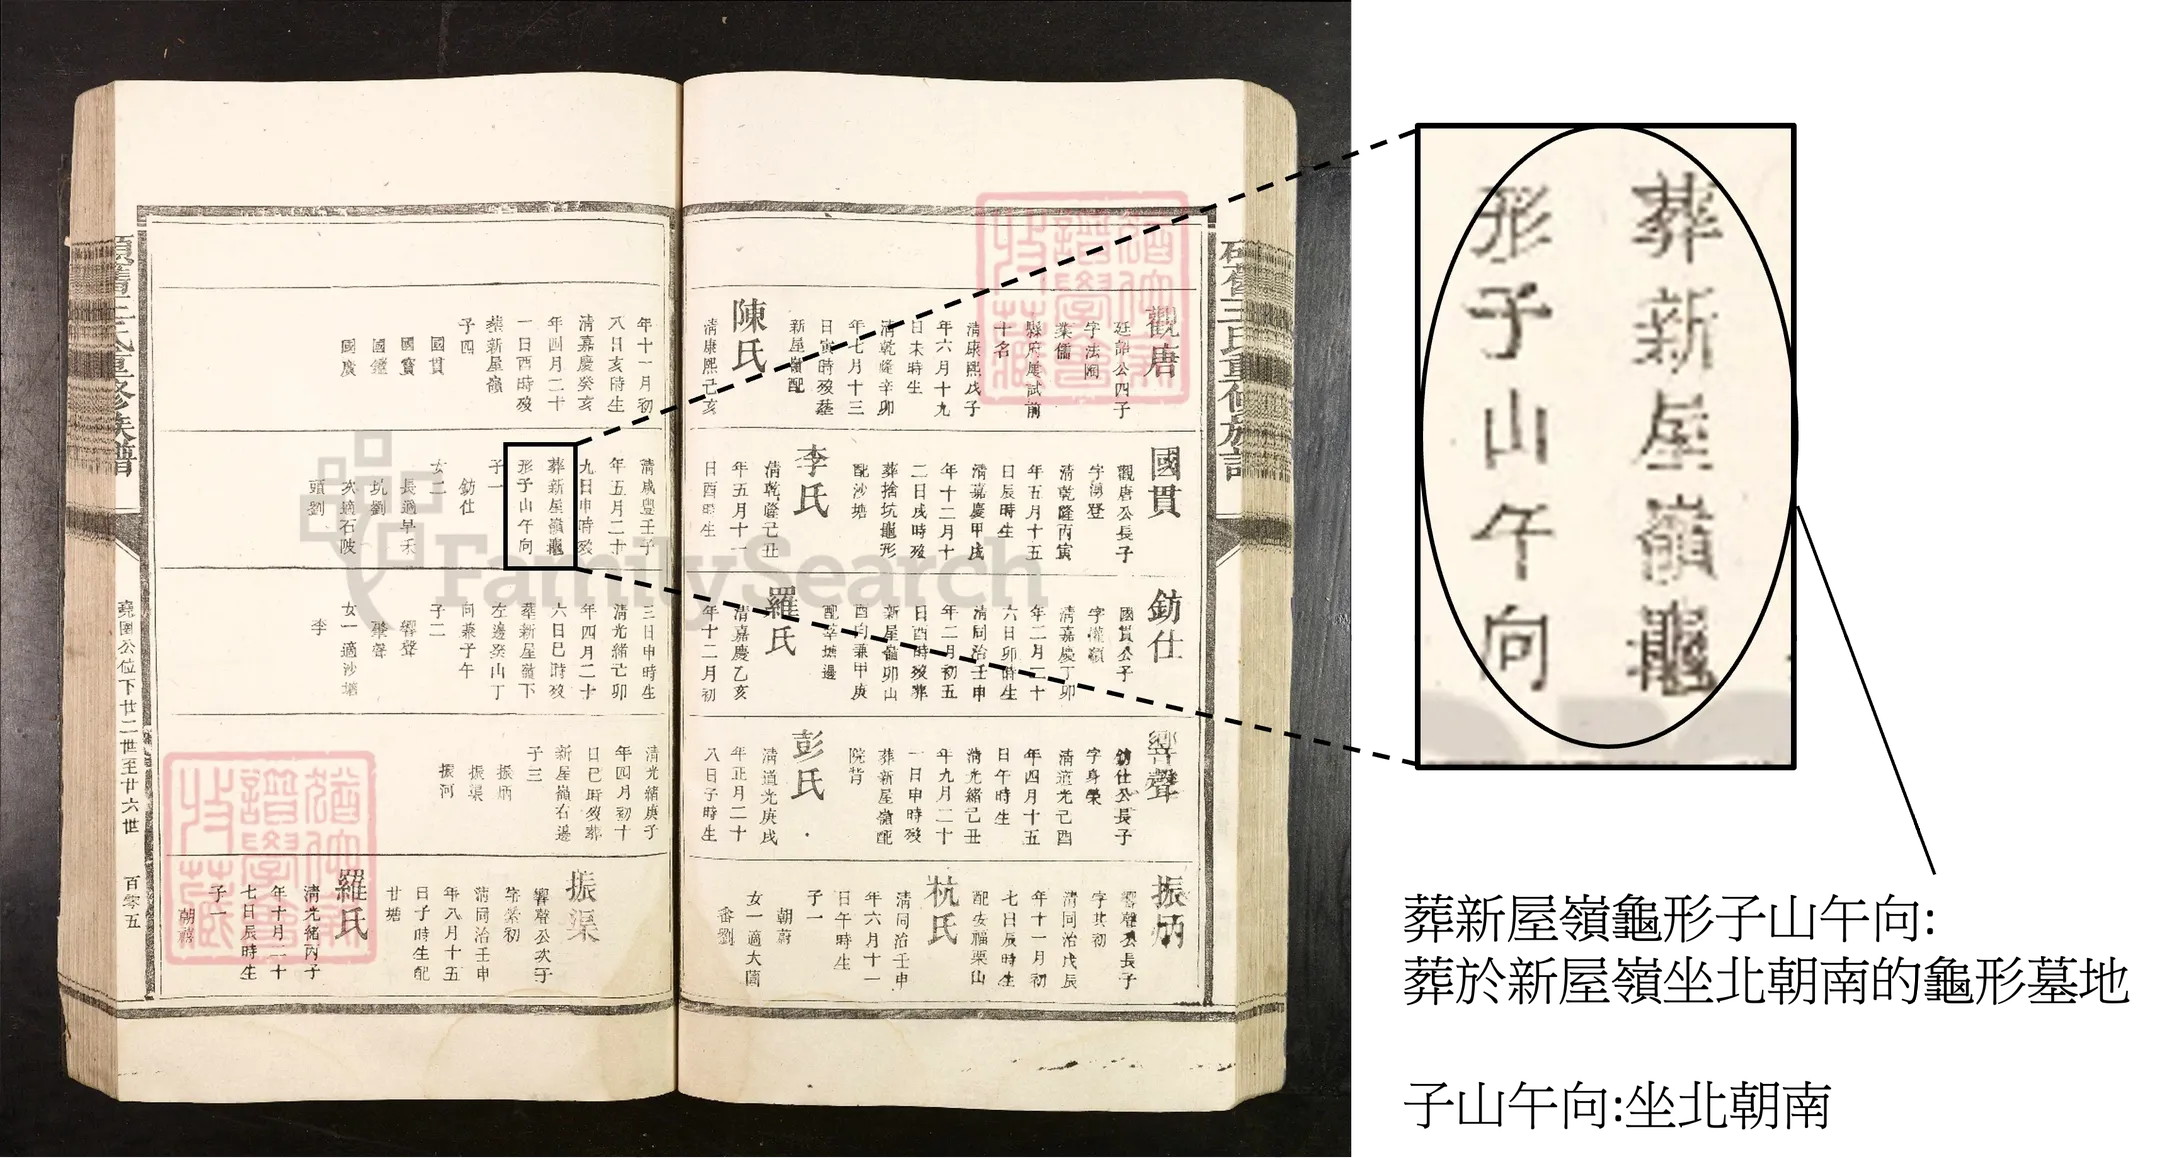 觀唐
廷詔公四子
字法圈
業儒
縣府屢試前
十名
清康熙戊子
年六月十九
日未時生
清乾隆辛卯
年七月十三
日寅時歿葬
新屋嶺配
陳氏
清康熙己亥
年十一月初
八日亥時生
清嘉慶癸亥
年四月二十
一日酉時歿
葬新屋嶺
子四
國貫
國寶
國鐘
國廣
國貫
觀唐公長子
字湧登
清乾隆丙寅
年五月十五
日辰時生
清嘉慶甲戌
年十二月十
二日戌時歿
葬捨坑龜形
配沙塘
李氏
清乾隆己丑
年五月十一
日酉時生
清咸豐壬子
年五月二十
九日申時歿
葬新屋嶺龜
形子山午向
子一
鈁仕
女二
長適早禾
坑劉
次適石陂
頭劉
鈁仕
國貫公子
清嘉慶丁卯
年二月二十
六日卯時生
清同治壬申
年二月初五
日酉時歿葬
新屋嶺卯山
酉向兼甲庚
配莘塘邊
羅氏
清嘉慶乙亥
年十二月初
三日申時生
清光緒己卯
年四月二十
六日巳時歿
葬新屋嶺下
左邊癸山丁
向兼子午
子二
響聲
肇聲
女一適沙塘
李
響聲
鈁仕公長子
字身榮
清道光己酉
年四月十五
日午時生
清光緒己丑
年九月二十
一日申時歿
葬新屋嶺配
院背
彭氏
清道光庚戌
年正月二十
八日子時生
清光緒庚子
年四月初十
日巳時歿葬
新屋嶺右邊
子三
振炳
振渠
振河
振炳
響聲公長子
字其初
清同治戊辰
年十一月初
七日辰時生
配安福栗山
杭氏
清同治壬申
年六月十一
日午時生
子一
朝蔚
女一適大園
番劉
振渠
響聲公次子
字紫初
清同治壬申
年八月十五
日子時生配
廿塘
羅氏
清光緒丙子
年十月二十
七日辰時生
子一
朝禧
堯圈公位下廿二世至廿六世
百零五
FamilySearch
葬新屋嶺龜
形子山午向
葬新屋嶺龜形子山午向:
葬於新屋嶺坐北朝南的龜形墓地
子山午向:坐北朝南